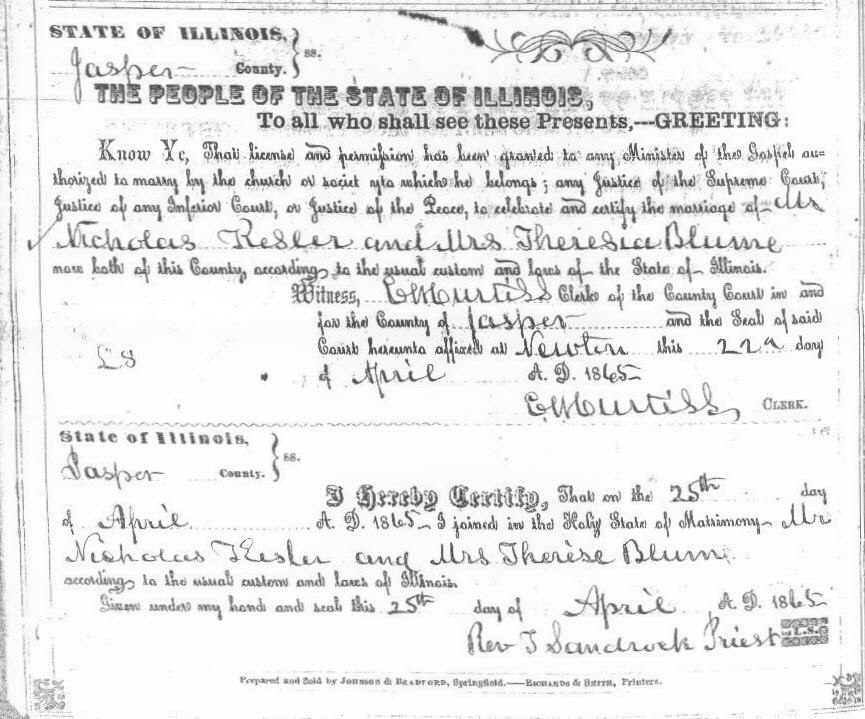 STATE OF ILLINOIS, } ss.
Jasper County.
THE PEOPLE OF THE STATE OF ILLINOIS,
To all who shall see these Presents,---GREETING:
Know Ye, That license and permission has been granted to any Minister of the Gospel au-
thorized to marry by the church or societ yto which he belongs; any Justice of the Supreme Court,
Justice of any Inferior Court, or Justice of the Peace, to celebrate and certify the marriage of Mr
Nicholas Kesler and Mrs Theresia Blume
now both of this County, according to the usual custom and laws of the State of Illinois.
Witness, Curtiss Clerk of the County Court in and
for the County of Jasper and the Seal of said
Court hereunto affixed at Newton this 22n day
LS
of April A. D. 1865
Curtiss, CLERK.
State of Illinois, } ss.
Jasper County.
I Hereby Certify, That on the 25th day
of April A. D. 1865 I joined in the Holy State of Matrimony Mr
Nicholas Kesler and Mrs Therèse Blum
according to the usual custom and laws of Illinois.
Given under my hand and seal this 25th day of April A. D. 1865
Rev Sandrock Priest L.S.
Prepared and Sold by JOHNSON & BRADFORD, Springfield.——RICHARDS & SMITH, Printers.